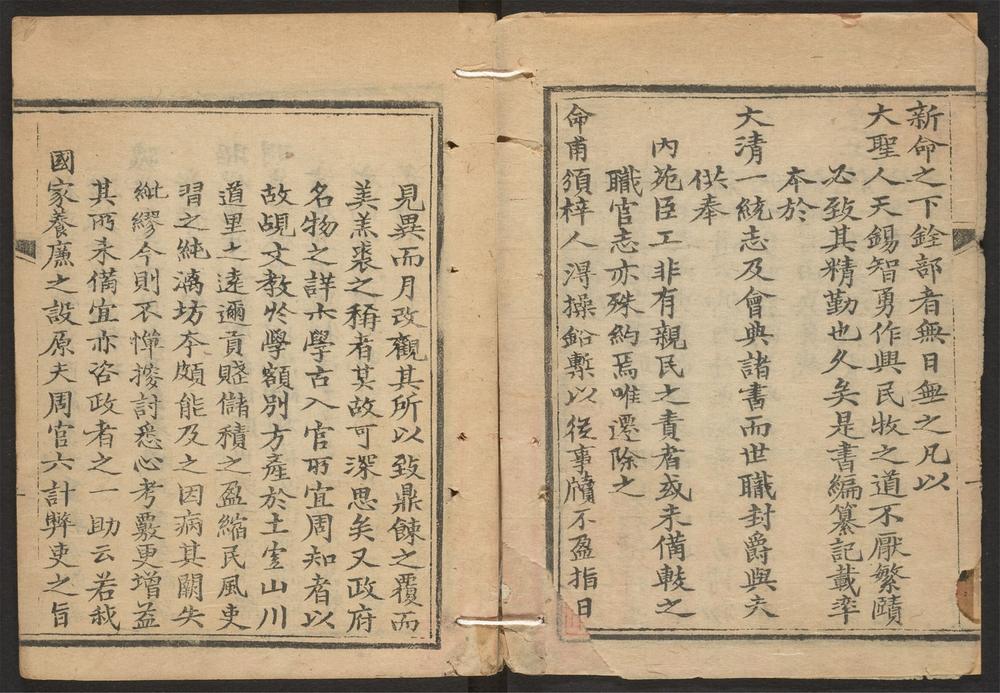 新命之下銓部者無日無之凡以
大聖人天錫智勇作興民牧之道不厭繁賾
必致其精勤也久矣是書編纂記載率
夲於
大清一統志及會典諸書而世職封爵與夫
供奉
內苑臣工非有親民之責者或未備載之
職官志亦殊約焉唯遷除之
命甫須梓人淂操鉛槧以從事牘不盈指日
見異而月改觀其所以致鼎餗之覆而
美羔裘之稱者其故可深思矣又政府
名物之詳尒學古入官所宜周知者以
故覘文教於學額別方產於土宜山川
道里之遠邇貢賤儲積之盈縮民風吏
習之純漓坊夲頗能及之因病其闕失
紕繆今則不憚摉討悉心考覈更增益
其所未備宜亦咨政者之一助云若我
國家養廉之設原夫周官六計弊吏之旨